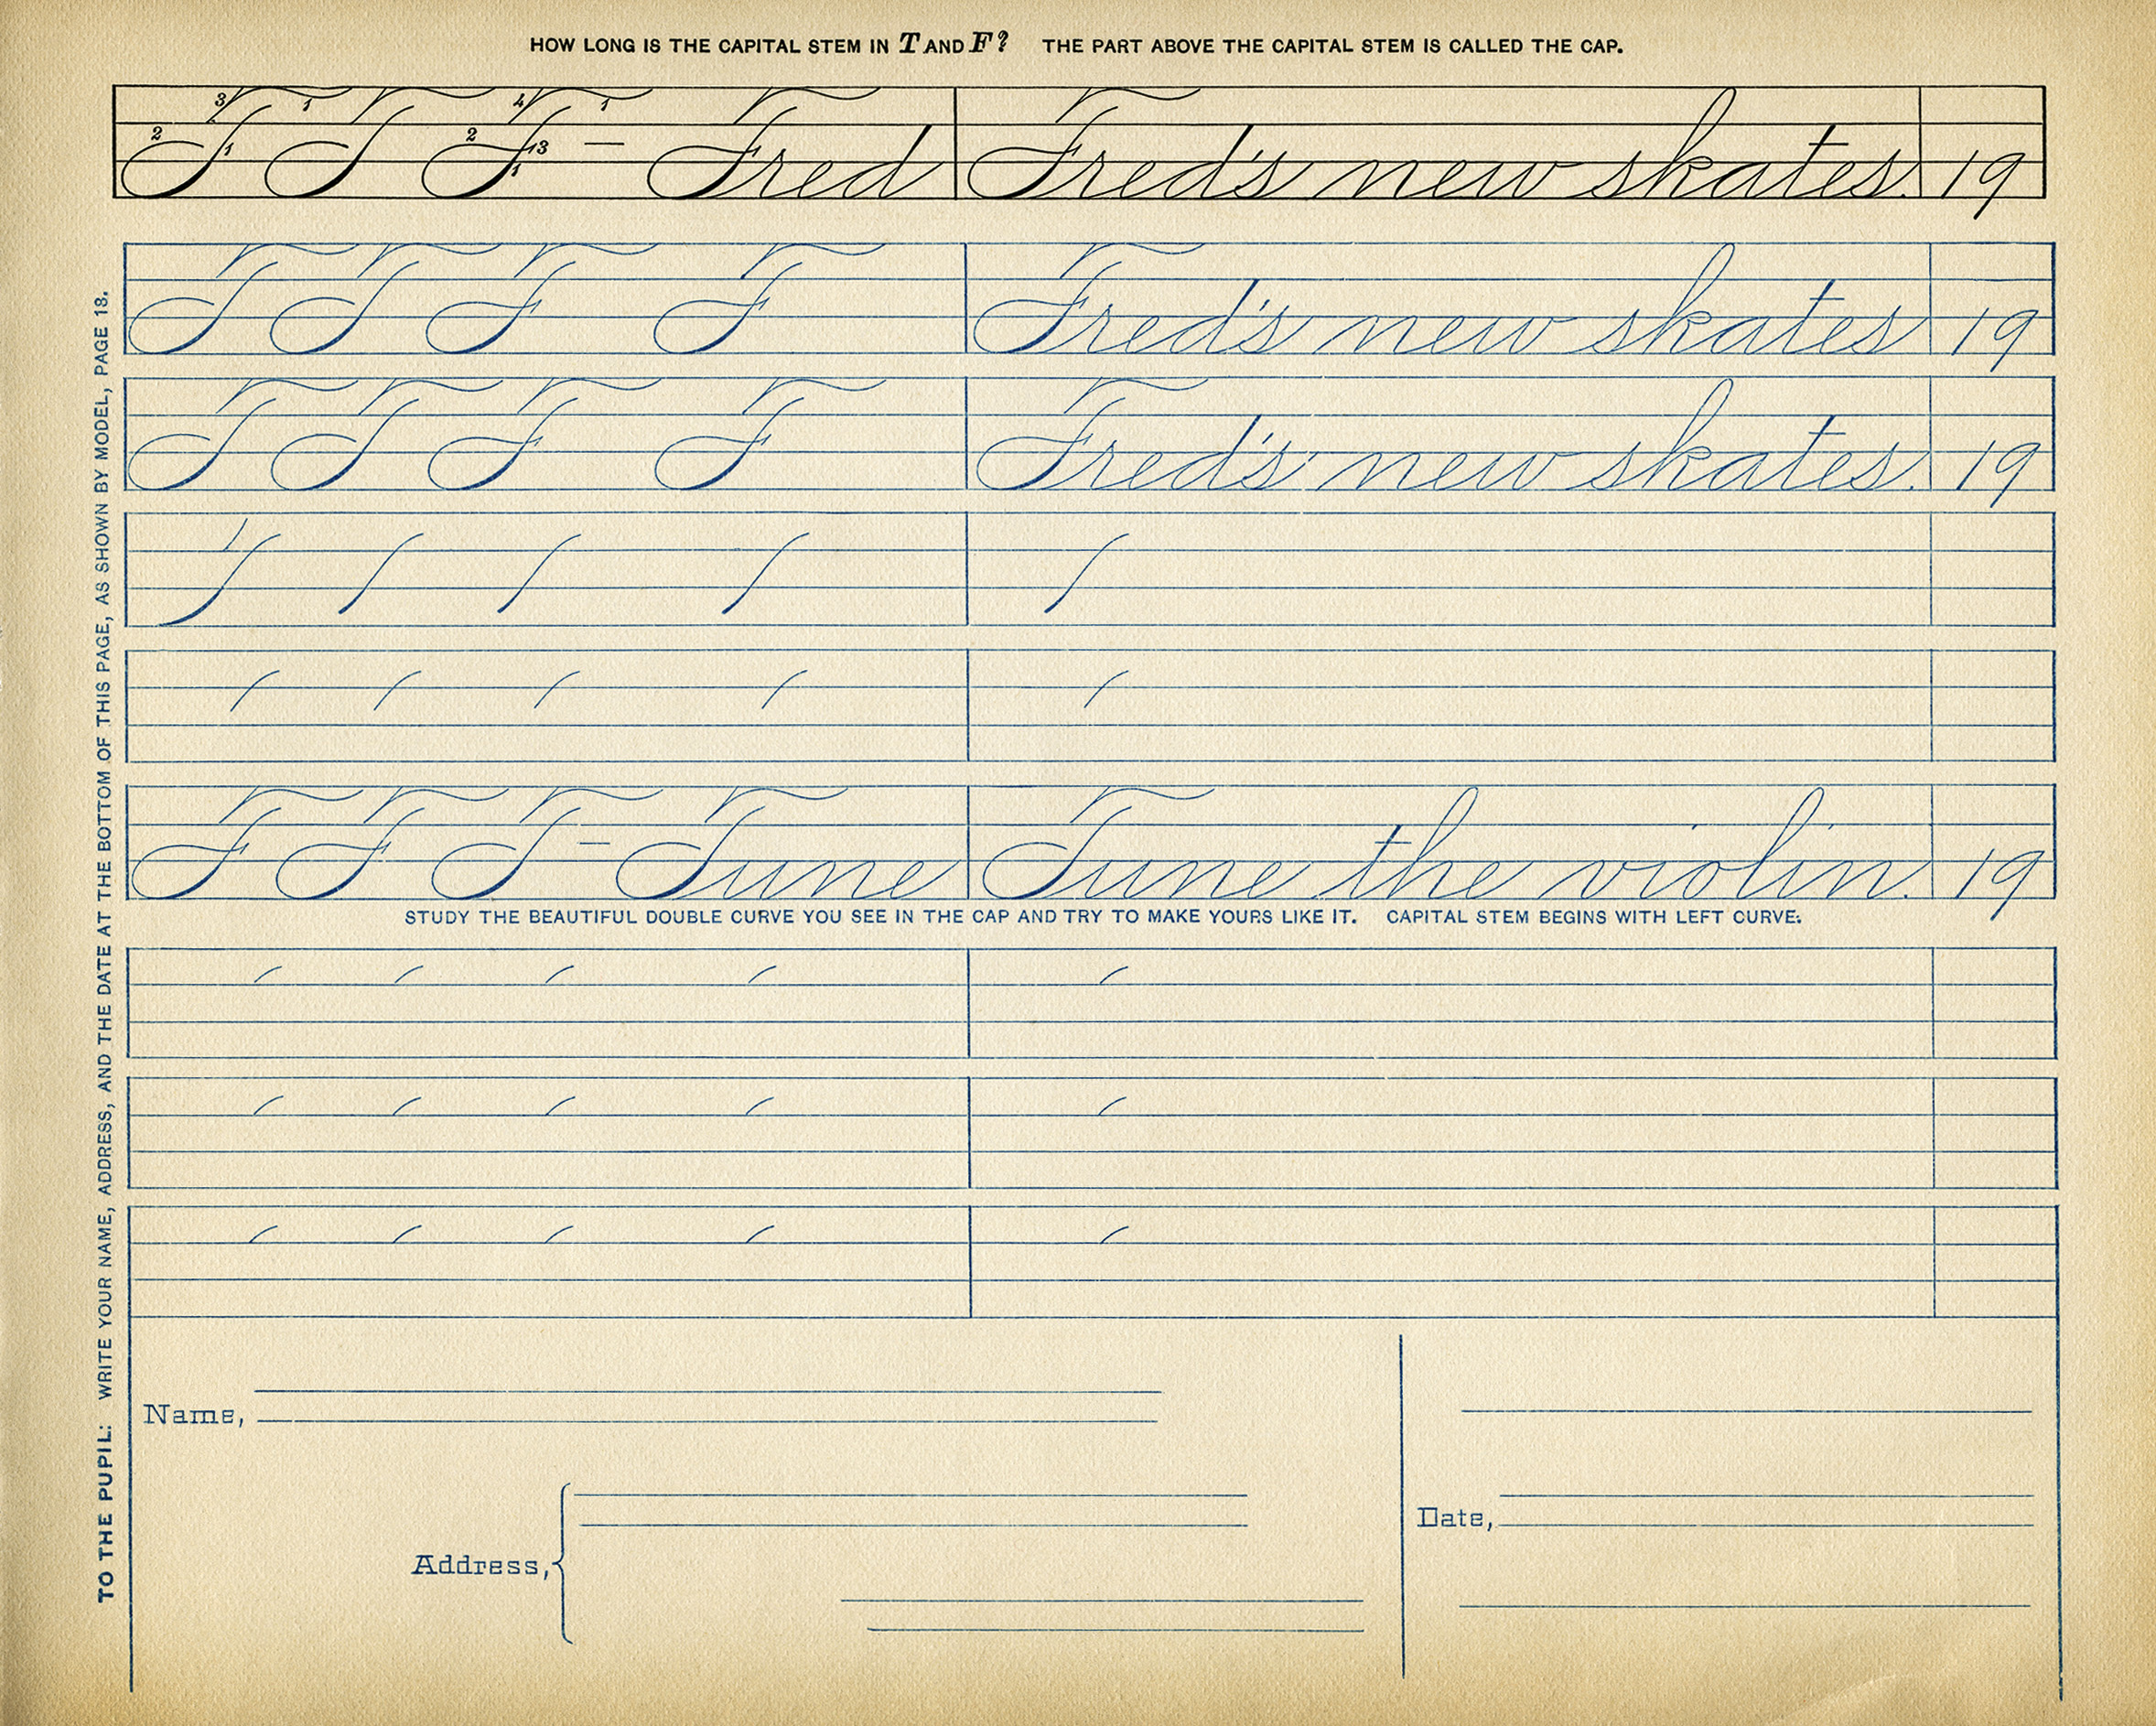 HOW LONG IS THE CAPITAL STEM IN T AND F? THE PART ABOVE THE CAPITAL STEM IS CALLED THE CAP.
3 1 4 1
2 1 2 13 1
T T F - Fred Fred's new skates. 19
T T F F Fred's new skates 19
T T F F Fred's new skates. 19
F F T - Tune Tune the violin. 19
STUDY THE BEAUTIFUL DOUBLE CURVE YOU SEE IN THE CAP AND TRY TO MAKE YOURS LIKE IT. CAPITAL STEM BEGINS WITH LEFT CURVE.
Name,
Address,
Date,
TO THE PUPIL: WRITE YOUR NAME, ADDRESS, AND THE DATE AT THE BOTTOM OF THIS PAGE, AS SHOWN BY MODEL, PAGE 18.